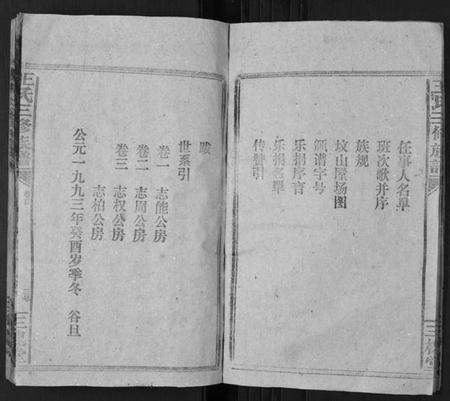 任事人名单
班次歌并序
族规
坟山屋场图
领谱字号
乐捐序言
乐捐名单
传赞引
跋
世系引
卷一 志能公房
卷二 志周公房
卷三 志权公房
志柏公房
公元一九九三年癸酉岁季冬 谷旦
王氏三修族谱
三槐堂